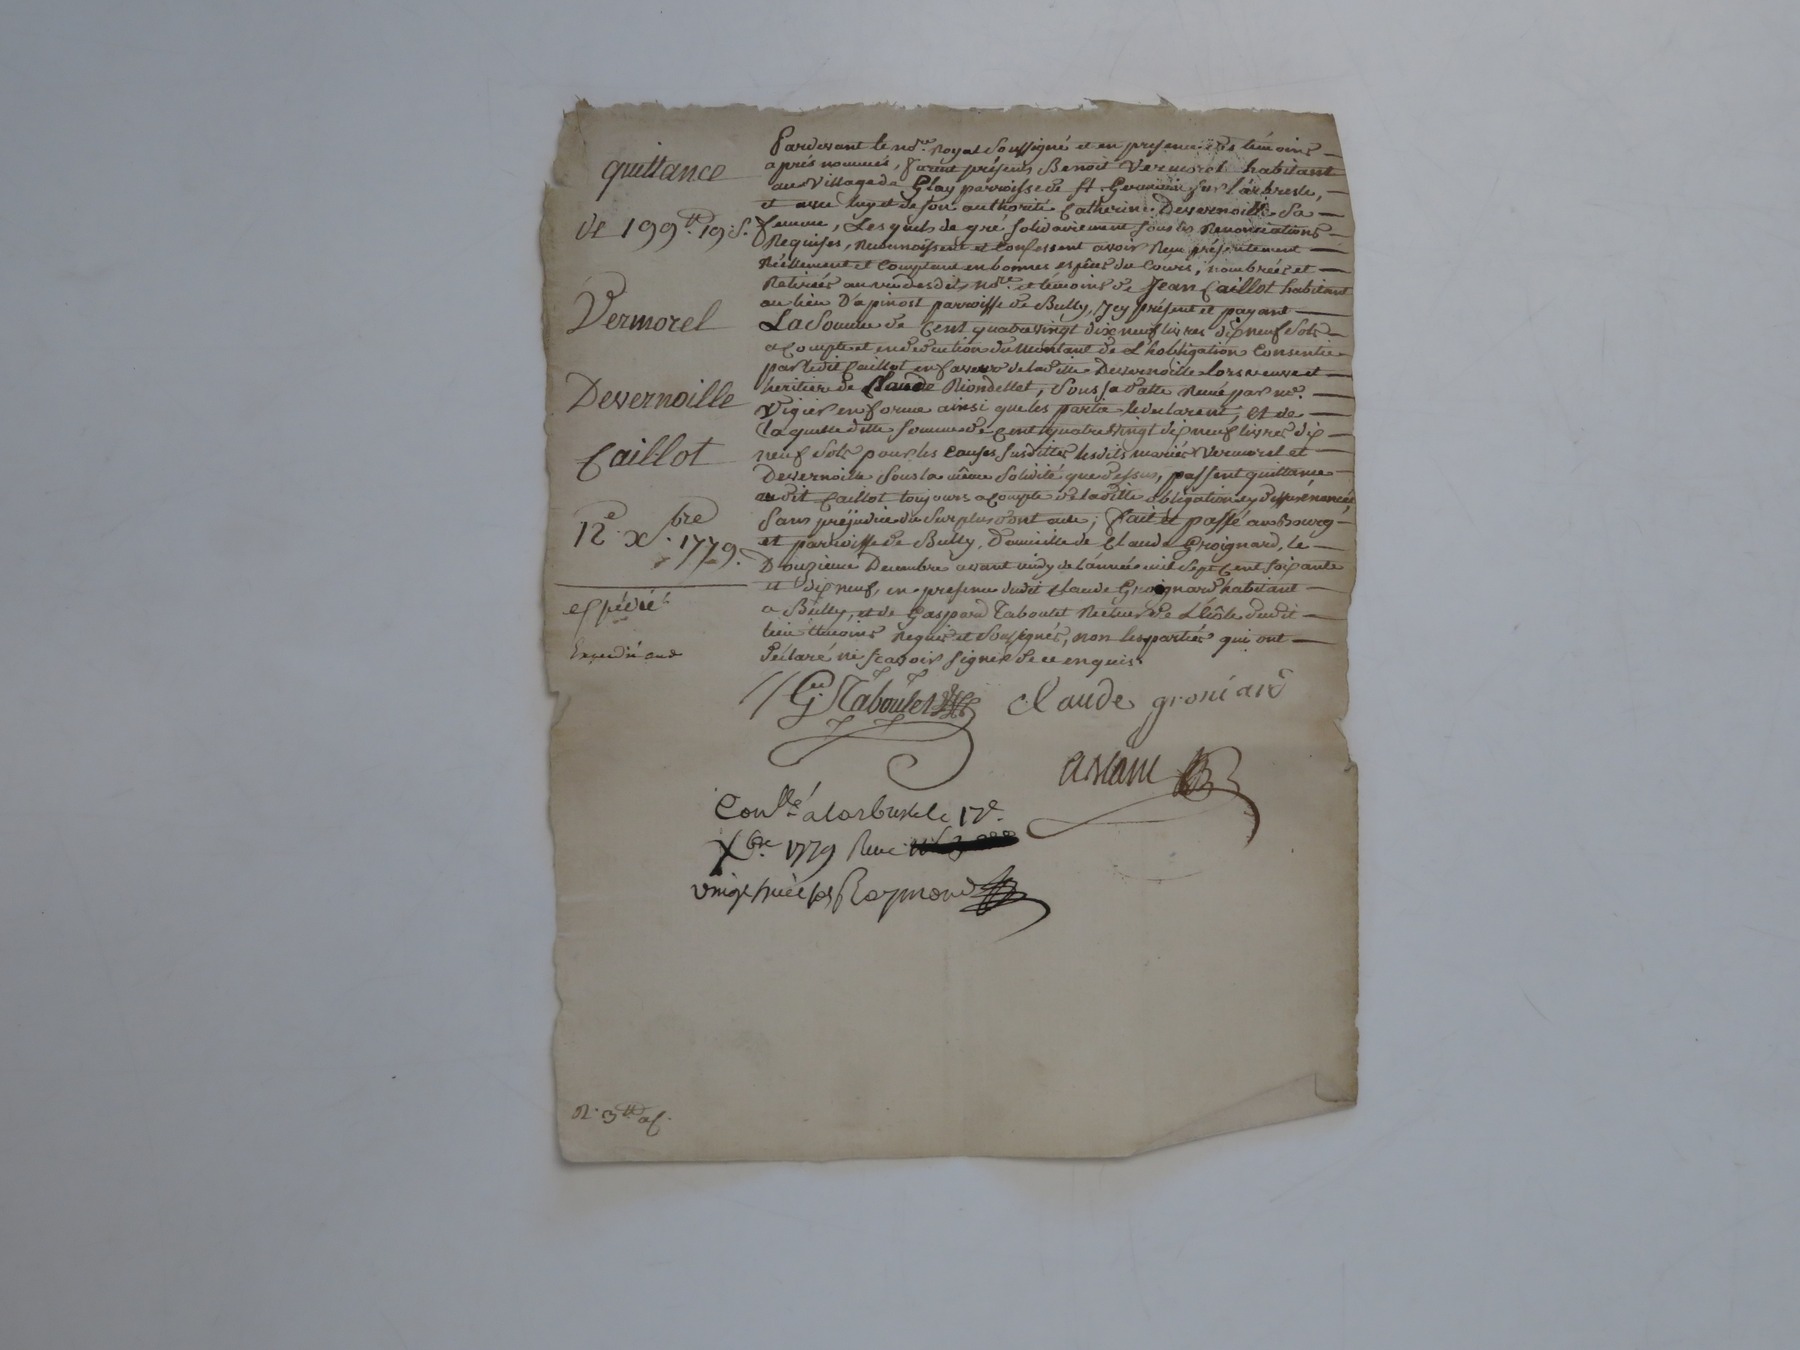 quittance
de 199.tt 19.s.
Vermorel
Devernoille
Caillot
12e. xbre. 1779.
expédié
Pardevant le nore. Royal soussigné et en presence des témoins
après nommés, furent présents Benoit Vermorel habitant
au village de Glay parroisse de st. Germain sur l'arbresle,
et avec luy et de son authorité Catherine Devernoille sa
femme, Lesquels de gré solidairement sous les Renonciations
Requises, Reconnoissent et Confessent avoir Reçu présentement
Réellement et Comptant en bonnes espèces du Cours, nombrées et
Retirées au vu desdits nore. et témoins de Jean Caillot habitant
au lieu D'apinost parroisse de Bully, icy présent et payant
La Somme de Cent quatre vingt dix neuf livres dix neuf sols
a Compte et en deduction du montant de L'hobligation Consentie
par ledit Caillot en faveur de laditte Devernoille lors veuve et
heritiere de Claude Riondellet, sous sa datte Reçue par me.
Vigier en forme ainsi que les partie le declarent, et de
laquelle ditte somme de Cent quatre vingt dix neuf livres dix
neuf sols pour les Causes susdittes lesdits mariés Vermorel et
Devernoille sous la même solidité que dessus, passent quittance
audit Caillot toujours a compte de laditte obligation cy dessus énoncée,
sans préjudice du surplus dont acte; fait et passé au Bourg
et parroisse de Bully, Domicille de Claude Groignard, le
Douzieme Decembre avant midy de l'année mil sept Cent soixante
et dix neuf, en presence dudit Claude Groignard habitant
a Bully, et de Gaspard Taboulet Recteur de L'école dudit
lieu témoins Requis et soussignés, non les parties qui ont
déclaré ne sçavoir signer de ce enquis.
G. Taboulet claude groniard
Conllé a larbresle le 17e.
Xbre. 1779 Reçu
vingt huit sols Raymond
R. 3tt